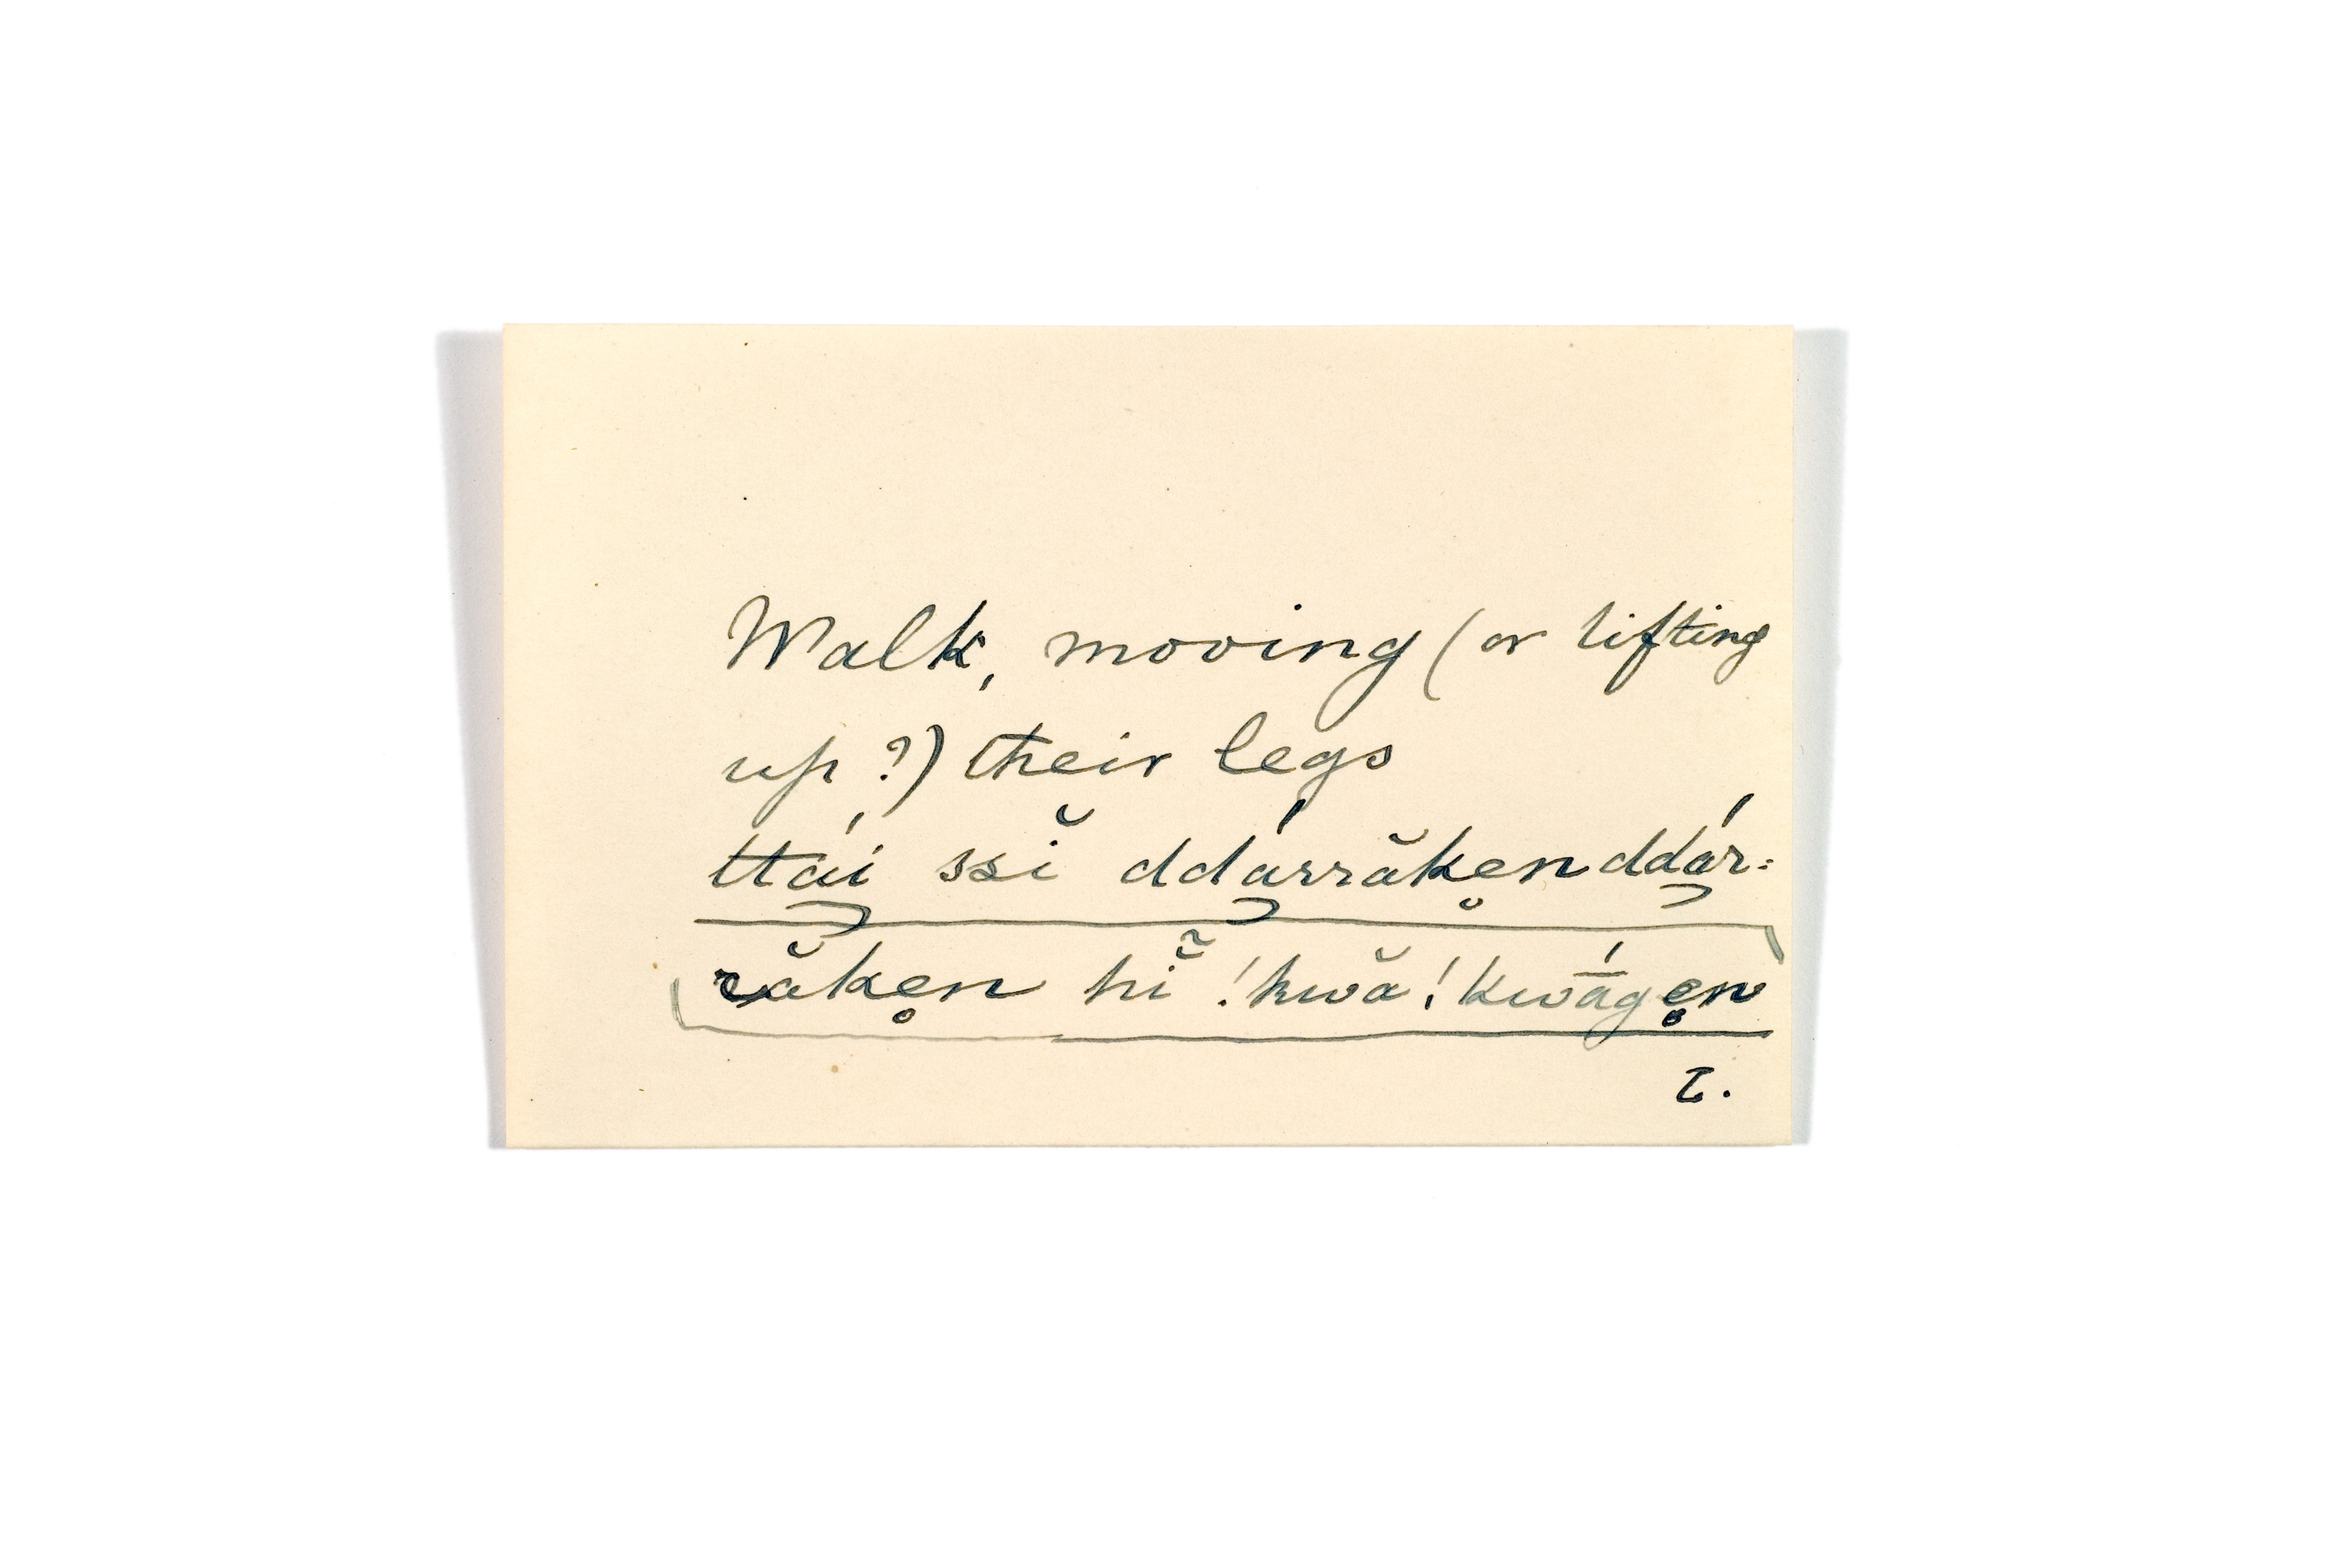 Walk, moving (or lifting
up?) their legs
ttái ssĭ ddárrăke̥nddár=
răke̥n hĭ̃ !kwă!kwā́ge̥n
L.